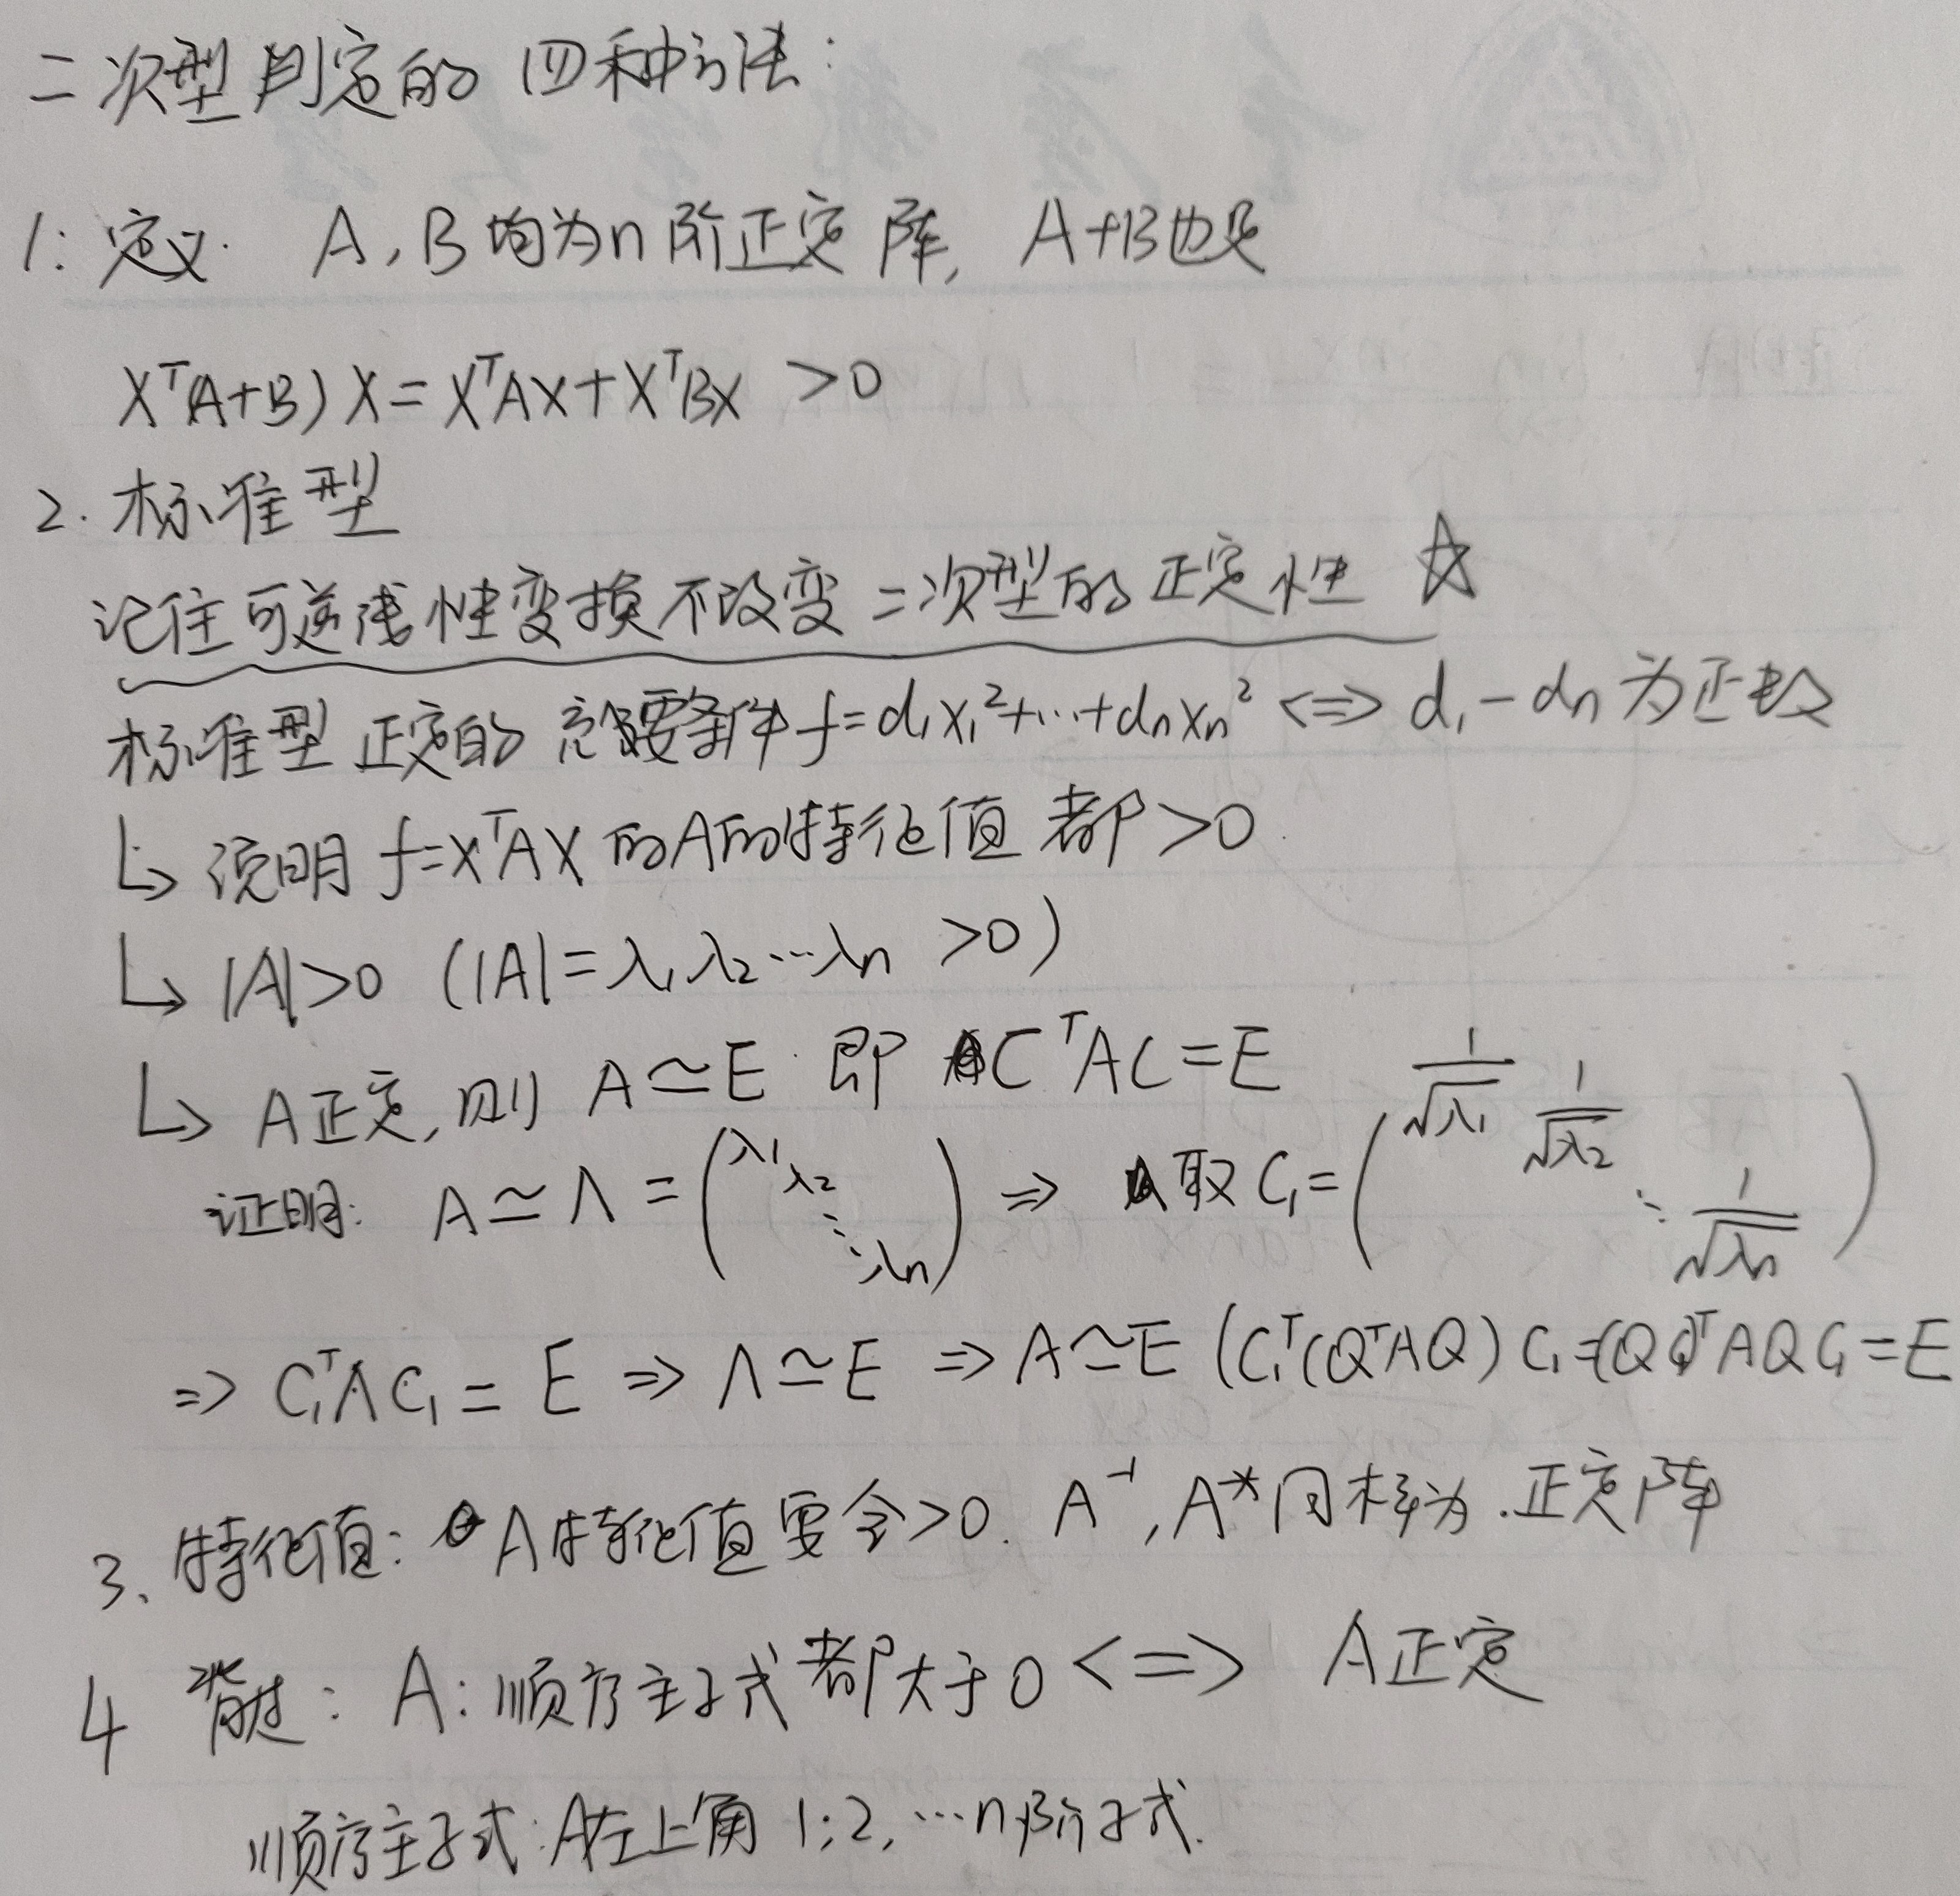 二次型判定的四种方法:
1: 定义. A,B均为n阶正定阵, A+B也是
X^T(A+B)X = X^TAX + X^TBX >0
2. 标准型
记住可逆线性变换不改变二次型的正定性 ☆
标准型正定的充要条件 f=d₁x₁²+…+dₙxₙ² <=> d₁-dₙ为正数
↳ 说明 f=X^TAX的A的特征值都>0
↳ |A|>0 (|A|=λ₁λ₂…λₙ >0)
↳ A正定,则 A≃E 即 C^TAC=E
证明: A≃Λ = (λ₁ λ₂ ⋱ λₙ) => 取C₁= (1/√λ₁ 1/√λ₂ ⋱ 1/√λₙ)
=> C₁^TΛC₁ = E => Λ≃E => A≃E (C₁^T(Q^TAQ)C₁=(QC₁)^TAQC₁=E
3、特征值: A特征值要全>0. A⁻¹,A*同样为正定阵
4 : A: 顺序主子式都大于0 <=> A正定
顺序主子式:A左上角 1;2,…n阶子式.